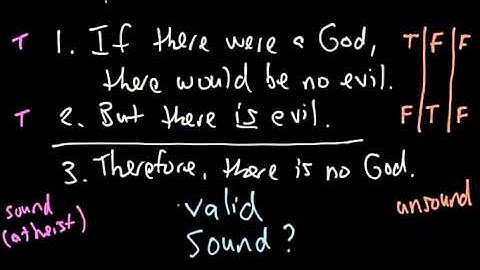 T 1. If there were a God, T F F
there would be no evil.
T 2. But there is evil. F T F
3. Therefore, there is no God.
sound valid unsound
(atheist) Sound?